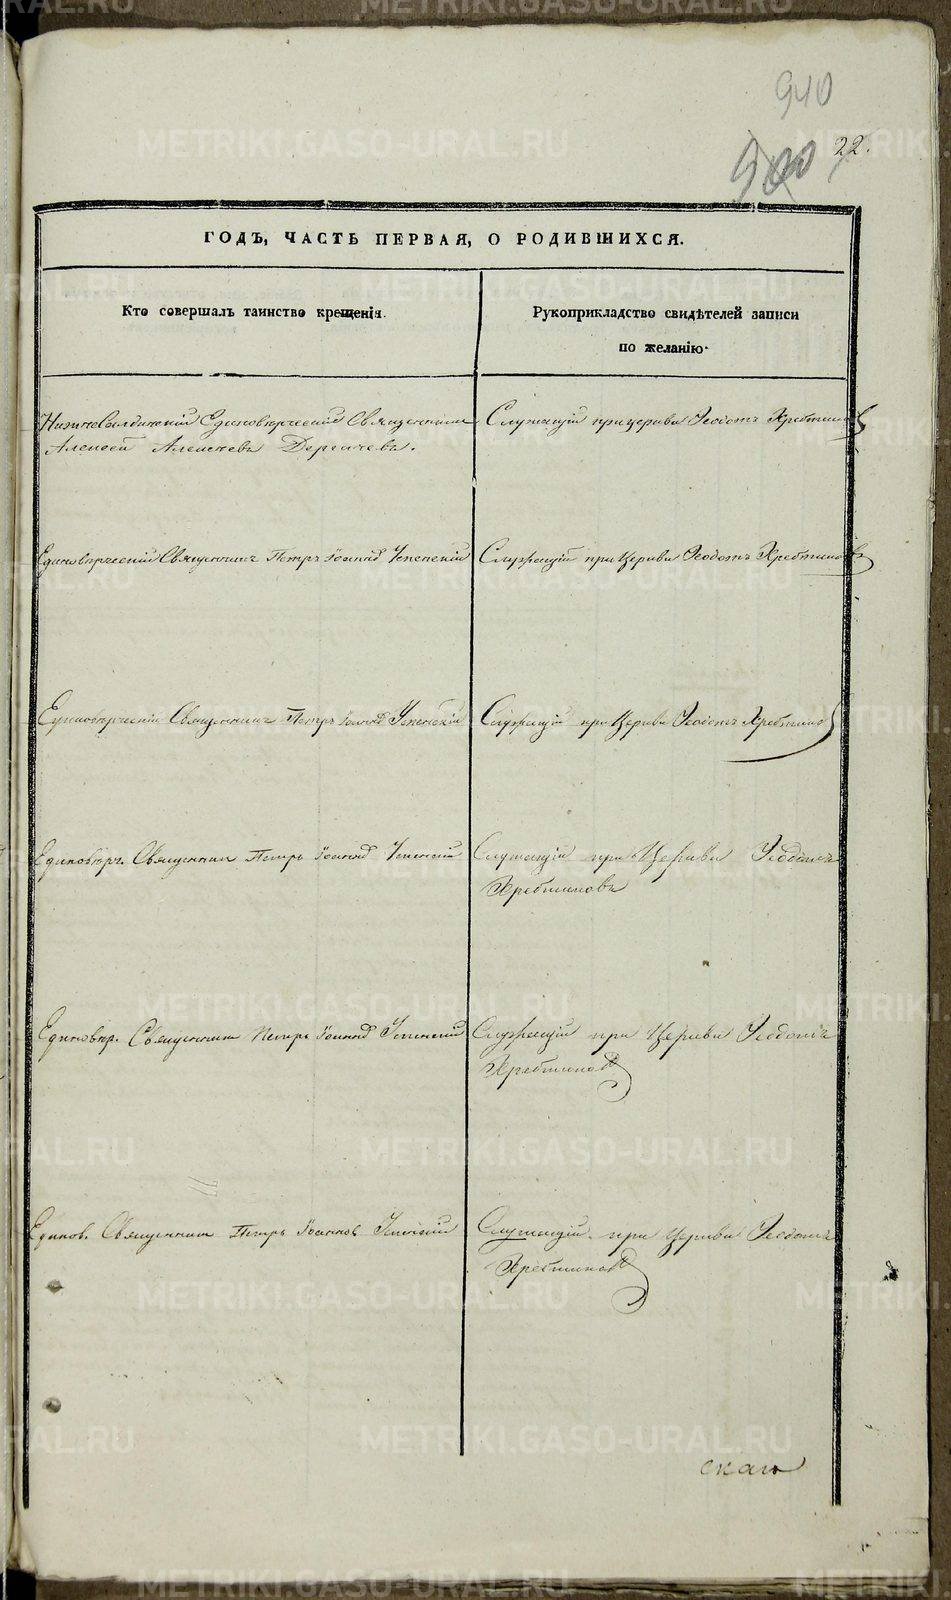 940
900 22.
ГОДЪ, ЧАСТЬ ПЕРВАЯ, О РОДИВШИХСЯ.
Кто совершалъ таинство крещенія.
Рукоприкладство свидѣтелей записи
по желанію.
Нижнесалдинскій Единовѣрческій Священникъ
Алексѣй Алексѣевъ Дерсичевъ.
Служащій при церкви Ѳеодотъ Хребтиковъ
Единовѣрческій Священникъ Петръ Іоаннов Успенскій
Служащій при Церкви Ѳеодотъ Хребтиковъ
Единовѣрческій Священникъ Петръ Іоаннов Успенскій
Служащій при Церкви Ѳеодотъ Хребтиков
Единовѣрч. Священник Петръ Іоаннов Успенскій
Служащій при Церкви Ѳеодотъ
Хребтиковъ
Единовѣр. Священник Петръ Іоаннов Успенскій
Служащій при Церкви Ѳеодотъ
Хребтиков
Единов. Священник Петръ Іоаннов Успенскій
Служащій при Церкви Ѳеодотъ
Хребтиков
скаго
METRIKI.GASO-URAL.RU